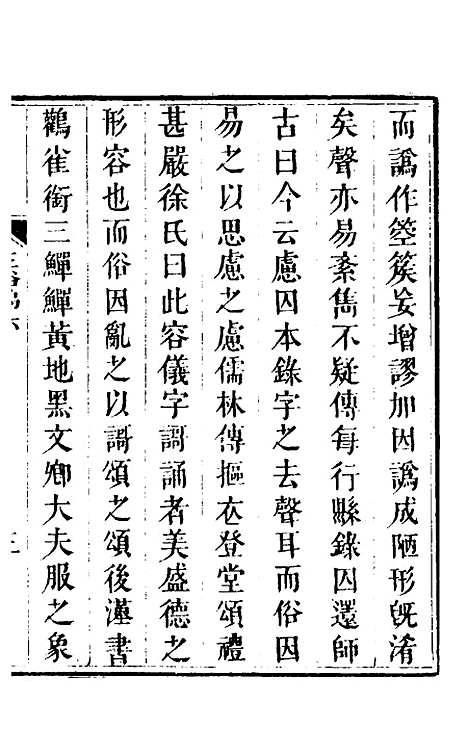 而譌作箜篌妄增謬加因譌成陋形旣淆
矣聲亦易紊雋不疑傳每行縣錄囚還師
古曰今云慮囚本錄字之去聲耳而俗因
易之以思慮之慮儒林傳摳衣登堂頌禮
甚嚴徐氏曰此容儀字謌誦者美盛德之
形容也而俗因亂之以謌頌之頌後漢書
鸛雀銜三鱓鱓黃地黑文卿大夫服之象